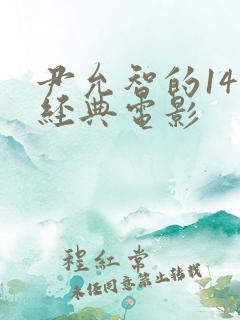 尹允智的14
經典電影
程紅常
未经同意禁止转载